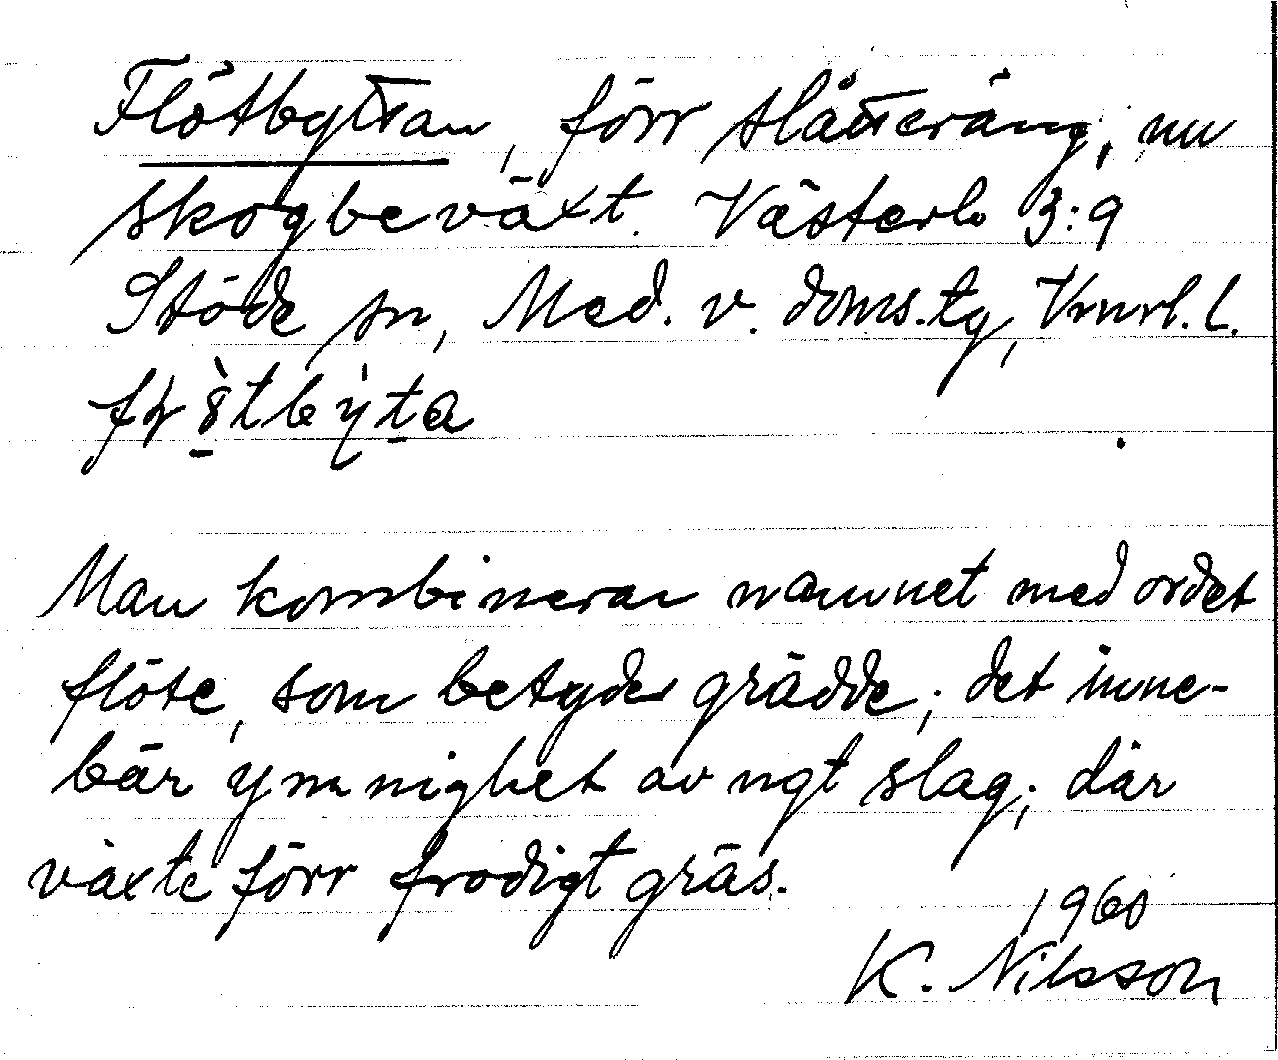 Flötbyttan, förr slåtteräng, nu
skogbeväxt. Västerlo 3:9
Stöde sn, Med. v. doms.tg, Vnrl. l.
Man kombinerar namnet med ordet
flöte, som betyder grädde; det inne-
bär ymnighet av ngt slag; där
växte förr frodigt gräs.
1960
K. Nilsson